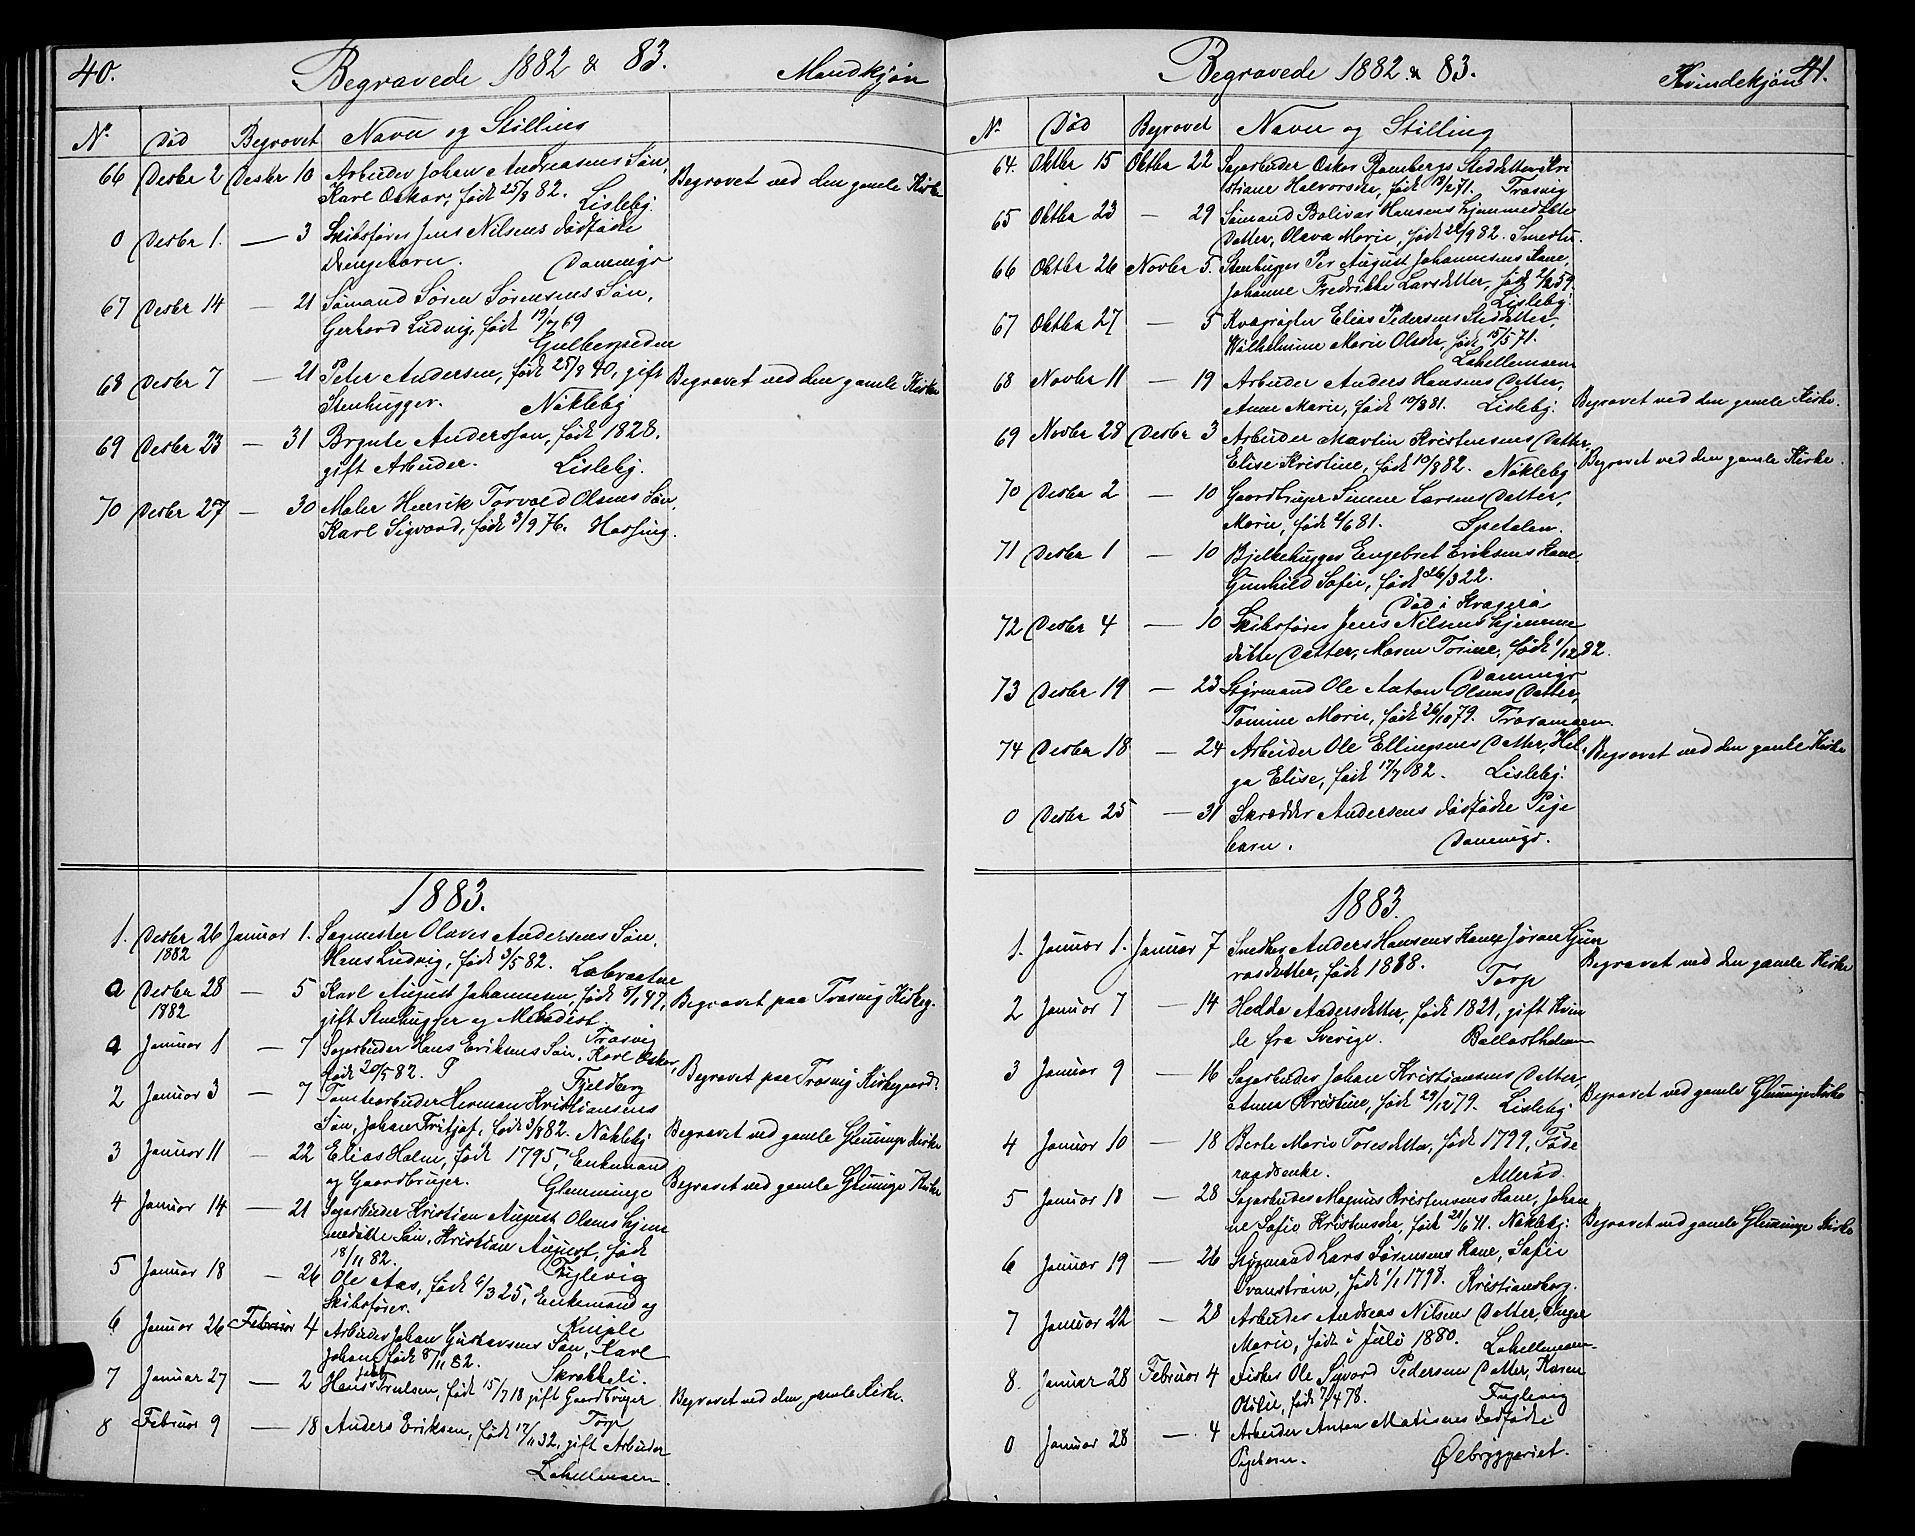 40.
Begravede 1882 & 83.
Mandkjøn
No Død Begravet Navn og Stilling
66 Desbr 2 Desbr 10 Arbeider Johan Andreasens Søn,
Karl Oskar, født 25/8 82. Lisleby.
Begravet ved den gamle Kirke
0 Desbr 1. — 3 Skibsfører Jens Nilsens dødfødte
Drengebarn. Domingo
67 Desbr 14 — 21 Sømand Søren Sørensens Søn,
Gerhard Ludvig, født 19/7 69
Gulbergsiden
68 Desbr 7 — 21 Peter Andersen, født 25/9 40, gift
Stenhugger. Nøkleby
Begravet ved den gamle Kirke
69 Desbr 23 — 31 Brynte Andersson, født 1828.
gift Arbeider. Lisleby.
70 Desbr 27 — 30 Maler Henrik Torvald Olsens Søn,
Karl Sigvard, født 3/9 76. Hassing.
1883.
1. Desbr 26 Januar 1. Sagmester Olaves Andersens Søn,
1882 Hans Ludvig, født 3/5 82. Labraatne
a Desbr 28 — 5 Karl August Johannesen, født 8/1 47,
1882 gift Stenhugger og Metodist.
Trosvig
Begravet paa Trosvig Kirkeg.
a Januar 1 — 7 Sagarbeider Hans Eriksens Søn, Karl Oskar,
født 20/5 82. Fjeldberg
Begravet paa Trosvig Kirkegaard.
2 Januar 3 — 7 Tomtearbeider Herman Kristiansens
Søn, Johan Fritjof, født 3/8 82. Nøkleby
Begravet ved gamle Glemminge Kirke
3 Januar 11 — 22 Elias Holm, født 1795, Enkemand
og Gaardbruger. Glemminge
Begravet ved gamle Glemminge Kirke
4 Januar 14 — 21 Sagarbeider Kristian August Olsens hjem
medøbte Søn, Kristian August, født
18/11 82. Fuglevig
5 Januar 18 — 26 Ole Aas, født 6/3 25, Enkemand og
Skibsfører. Kniple
6 Januar 26 Februar 4 Arbeider Johan Gustavsens Søn, Karl
Johan, født 8/11 82. Skrakkeli.
7 Januar 27 — 2 Hans Trulsen, født 15/7 18 gift Gaardbruger
Torp
Begravet ved den gamle Kirke.
8 Februar 9 — 18 Anders Eriksen, født 12/11 32, gift Arbeider
Lahellemoen.
41.
Begravede 1882 & 83.
Kvindekjøn
No Død Begravet Navn og Stilling
64. Oktbr 15 Oktbr 22 Sagarbeider Oskar Rambergs Steddatter, Kri
stiane Halvorsdtr, født 18/2 71. Trosvig
65 Oktbr 23 — 29 Sømand Bolivar Hansens hjemmedøbte
Datter, Olava Marie, født 22/9 82. Smertu.
66 Oktbr 26 Novbr 5. Stenhugger Per August Johannesens Kone,
Johanne Fredrikke Larsdatter, født 2/12 59.
Lisleby.
67 Oktbr 27 — 5 Kvægrøgter Elias Pedersens Steddatter,
Wilhelmine Marie Olsdtr, født 15/5 71.
Lahellemoen
68 Novbr 11 — 19 Arbeider Anders Hansens Datter,
Anne Marie, født 10/8 81. Lisleby.
Begravet ved den gamle Kirke.
69 Novbr 28 Desbr 3 Arbeider Martin Kristensens Datter,
Elise Kristine, født 10/8 82. Nøkleby
Begravet ved den gamle Kirke.
70 Desbr 2 — 10 Gaardbruger Simen Larsens Datter,
Marie, født 2/6 81. Spetalen.
71 Desbr 1 — 10 Bjelkehugger Engebret Eriksens Kone,
Gunhild Sofie, født 26/3 22.
Død i Kragerø
72 Desbr 4 — 10 Skibsfører Jens Nilsens hjemme
døbte Datter, Maren Tomine, født 1/12 82.
Domingo
73 Desbr 19 — 23 Styrmand Ole Anton Olsens Datter,
Tomine Marie, født 26/10 79. Traramoen
74 Desbr 18 — 24 Arbeider Ole Ellingsens Datter, Hel
ga Elise, født 17/7 82. Lisleby.
Begravet ved den gamle Kirke
0 Desbr 25 — 31 Skrædder Andersens dødfødte Pige
barn. Domingo.
1883.
1. Januar 1. Januar 7 Snedker Anders Hansens Kone Jøran Gun
rosdatter, født 1818. Torp
Begravet ved den gamle Kirke
2 Januar 7 — 14 Hedda Andersdatter, født 1821, gift Kvin
de fra Sverige. Ballastholmen
3 Januar 9 — 16 Sagarbeider Johan Kristiansens Datter,
Anna Kristine, født 29/12 79. Lisleby
Begravet ved gamle Glemminge Kirke
4 Januar 10 — 18 Berte Marie Toresdatter, født 1799, Føde
raadsenke. Allerød.
5 Januar 18 — 28 Sagarbeider Magnus Kristensens Kone, Johan
ne Sofie Kristensdtr, født 21/6 41. Nøkleby.
Begravet ved gamle Glemminge Kirke
6 Januar 19 — 26 Styrmand Lars Sørensens Kone, Sofie
Svanstrøm, født 1/1 1798. Kristiansborg.
7 Januar 22 — 28 Arbeider Andreas Nilsens Datter, Inger
Marie, født i Juli 1880. Lahellemoen.
8. Januar 28 Februar 4 Fisker Ole Sigvard Pedersens Datter, Karen
Otilie, født 7/4 78. Fuglevig
0 Januar 28 — 4 Arbeider Anton Matisens dødfødte
Pigebarn. Ølbryggeriet.